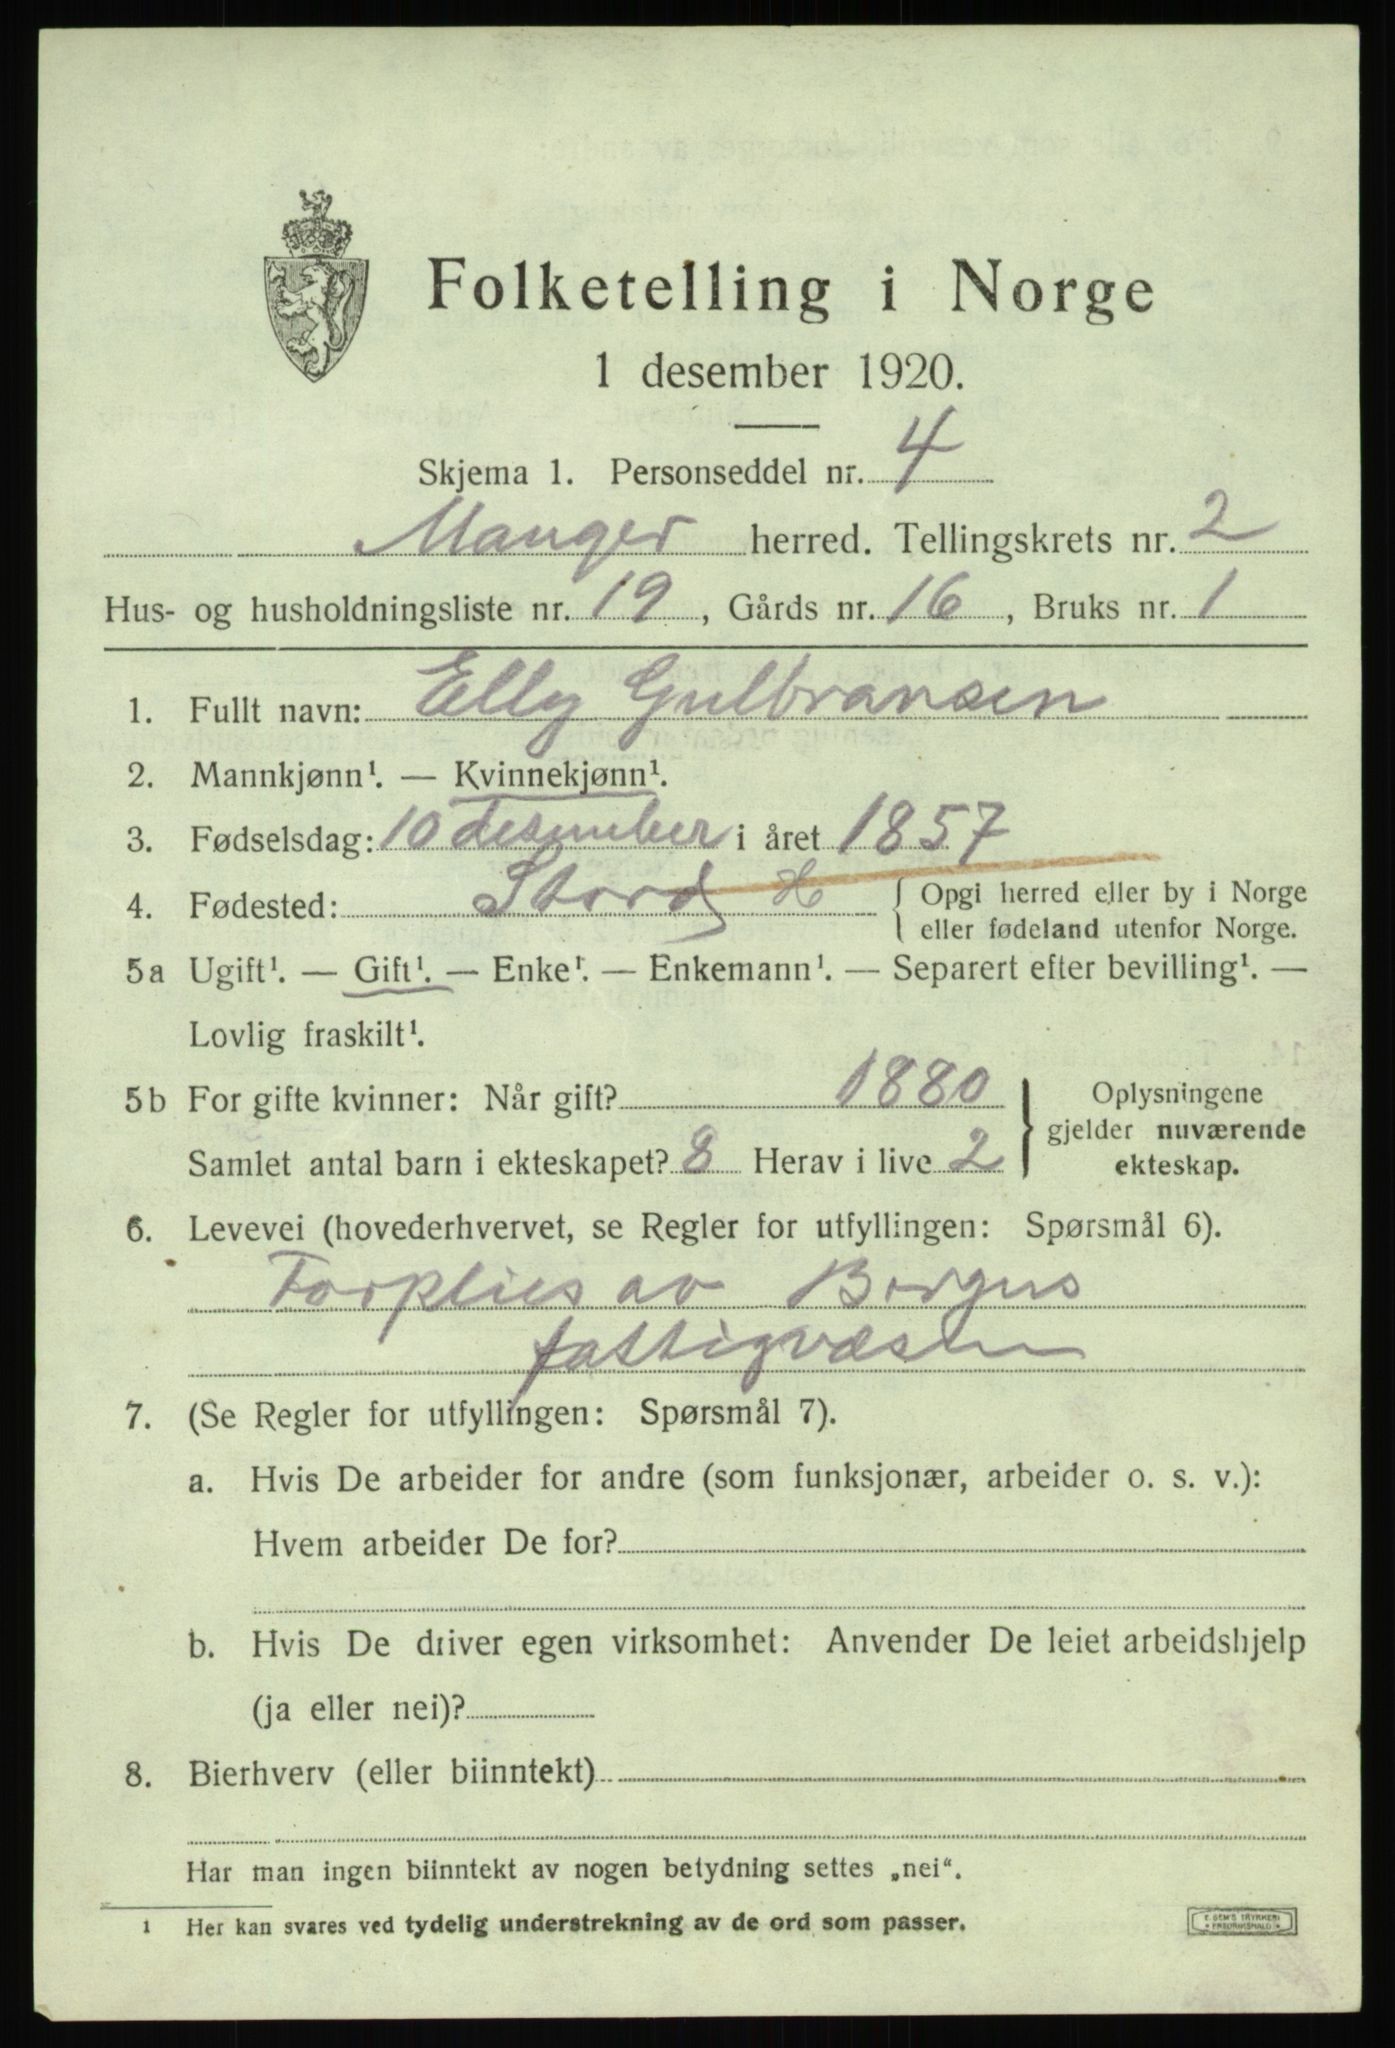 Folketelling i Norge
1 desember 1920.
Skjema 1. Personseddel nr. 4
Manger herred. Tellingskrets nr. 2
Hus- og husholdningsliste nr. 19, Gårds nr. 16, Bruks nr. 1
1. Fullt navn: Elly Gulbransen
2. Mannkjønn¹. — Kvinnekjønn¹.
3. Fødselsdag: 10 desember i året 1857
4. Fødested: Stord H { Opgi herred eller by i Norge
eller fødeland utenfor Norge.
5a Ugift¹. — Gift¹. — Enke¹. — Enkemann¹. — Separert efter bevilling¹. —
Lovlig fraskilt¹.
5b For gifte kvinner: Når gift? 1880
Samlet antal barn i ekteskapet? 8 Herav i live 2
} Oplysningene
gjelder nuværende
ekteskap.
6. Levevei (hovederhvervet, se Regler for utfyllingen: Spørsmål 6).
Forpleies av Bergens
fattigvæsen
7. (Se Regler for utfyllingen: Spørsmål 7).
a. Hvis De arbeider for andre (som funksjonær, arbeider o. s. v.):
Hvem arbeider De for?
b. Hvis De driver egen virksomhet: Anvender De leiet arbeidshjelp
(ja eller nei)?
8. Bierhverv (eller biinntekt)
Har man ingen biinntekt av nogen betydning settes „nei“.
¹ Her kan svares ved tydelig understrekning av de ord som passer.
E. SEM'S TRYKKERI
FREDRIKSHALD